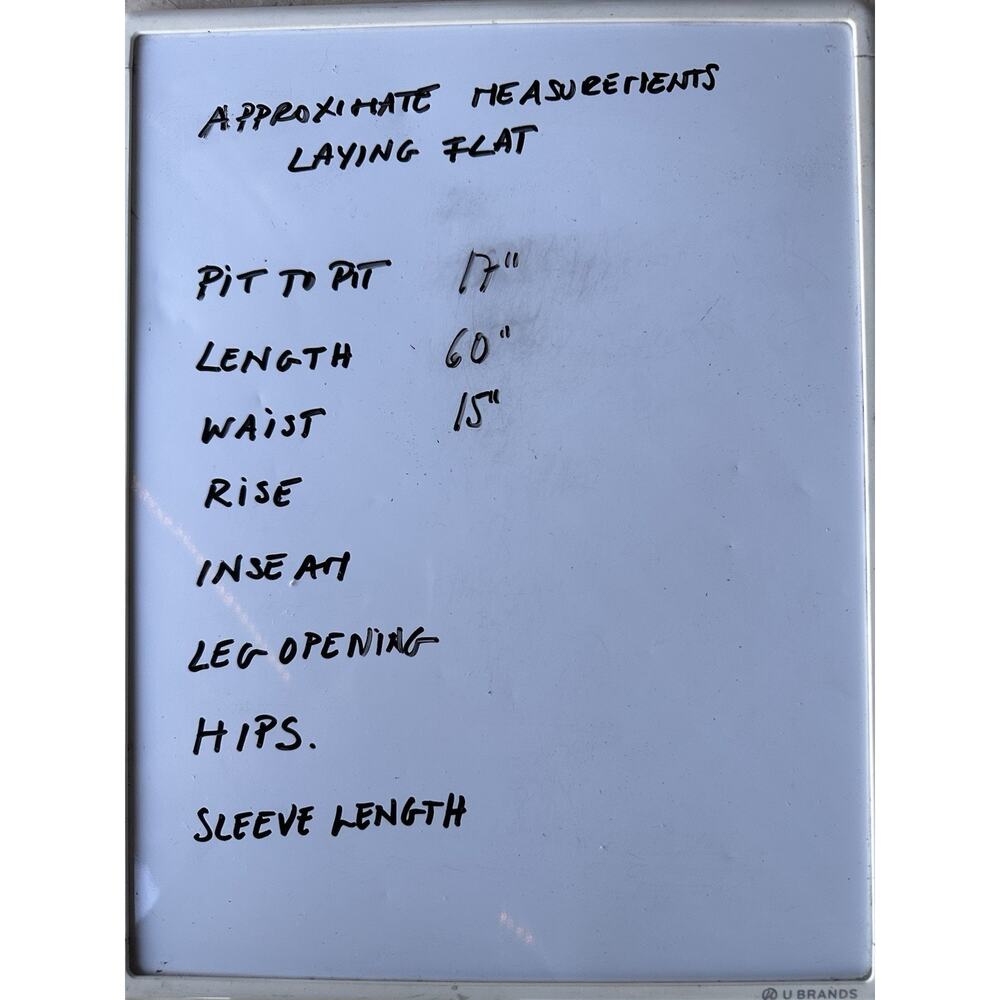 APPROXIMATE MEASUREMENTS
LAYING FLAT
PiT TO PiT 17"
LENGTH 60"
WAiST 15"
RiSE
INSEAM
LEG OPENING
HIPS.
SLEEVE LENGTH
U BRANDS